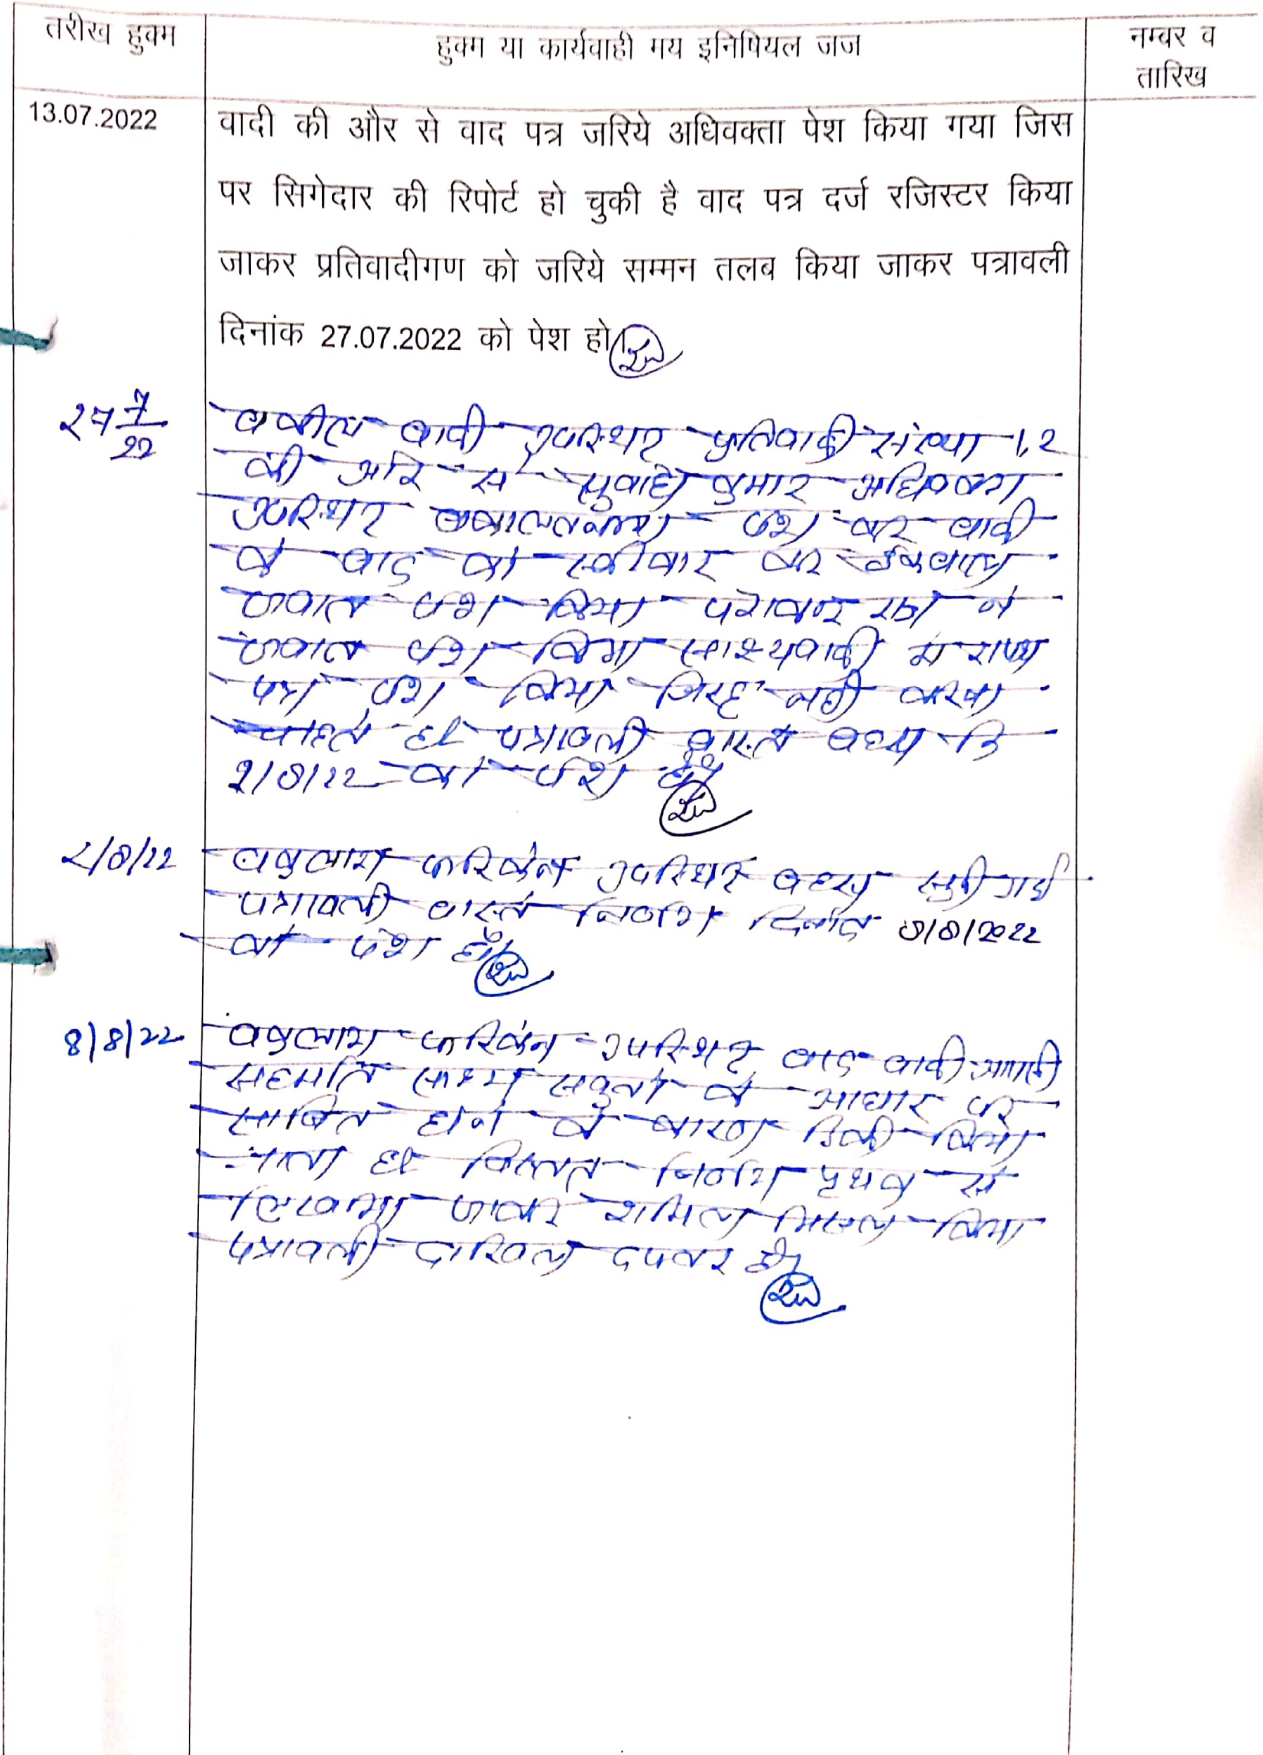 तरीख हुक्म
हुक्म या कार्यवाही मय इनिषियल जज
नम्बर व
तारिख
13.07.2022
वादी की और से वाद पत्र जरिये अधिवक्ता पेश किया गया जिस
पर सिगेदार की रिपोर्ट हो चुकी है वाद पत्र दर्ज रजिस्टर किया
जाकर प्रतिवादीगण को जरिये सम्मन तलब किया जाकर पत्रावली
दिनांक 27.07.2022 को पेश हो।
27/7/22
वकील वादी उपस्थित प्रतिवादी संख्या 1,2
की ओर से कुमार अधिवक्ता
उपस्थित वकालतनामा पेश कर वादी
के वाद को स्वीकार कर इकबाल
जवाब पेश किया ने
जवाब पेश किया साक्ष्यवादी में शपथ
पत्र पेश किया जिरह नही करना
चाहते है पत्रावली वास्ते बहस दि
2/8/22 को पेश हो
2/8/22
वकुलाय फरिकेन उपस्थित बहस सुनी गई
पत्रावली वास्ते निर्णय दिनांक 8/8/2022
को पेश हो
8/8/22
वकुलाय फरिकेन उपस्थित वाद वादी
सहमति साक्ष्य सबुतो के आधार पर
साबित होने के कारण डिक्री किया
जाता है विस्तृत निर्णय पृथक से
लिखाया जाकर शामिल मिसल किया
पत्रावली दाखिल दफ्तर हो